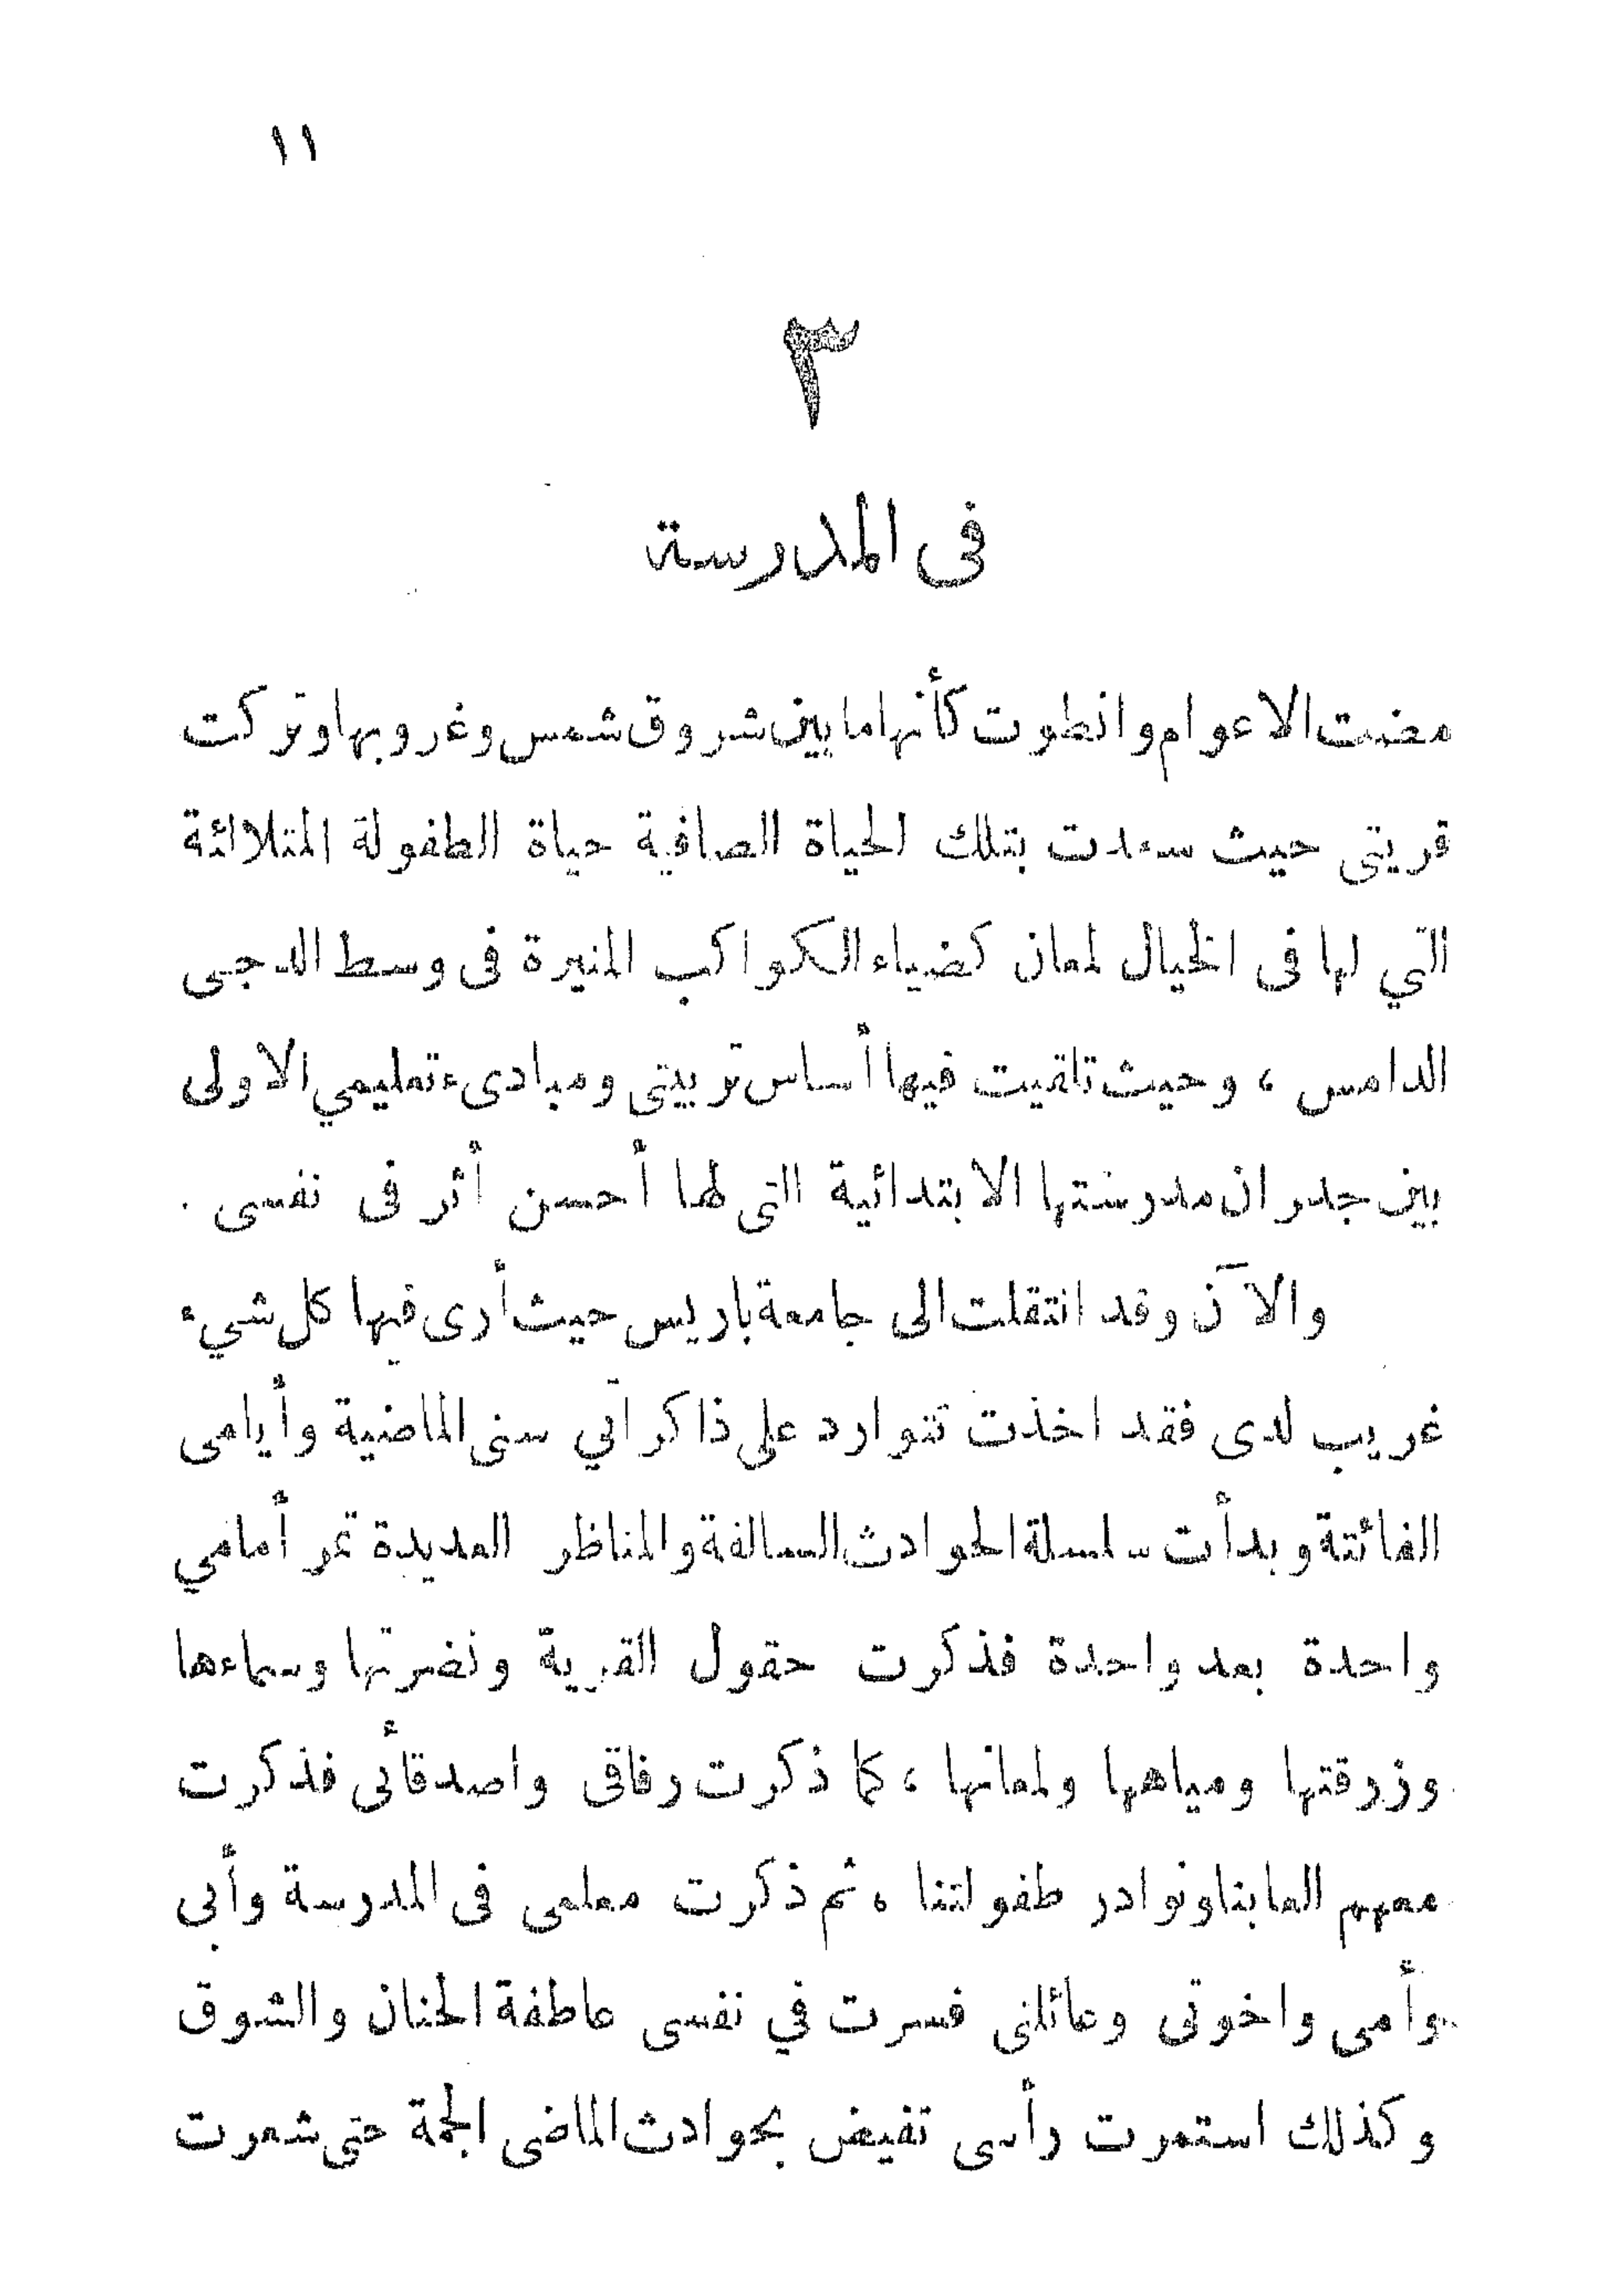 ١١
٣
فى المدرسة
مضت الاعوام وانطوت كأنها ما بين شروق شمس وغروبها وتركت
قريتى حيث سعدت بتلك الحياة الصافية حياة الطفولة المتلائة
التي لها فى الخيال لمعان كضياء الكواكب المنيرة فى وسط الدجى
الدامس ، وحيث تلقيت فيها أساس تربيتى ومبادىء تعليمي الاولى
بين جدران مدرستها الابتدائية التى لها أحسن أثر فى نفسى .
والآن وقد انتقلت الى جامعة باريس حيث أرى فيها كل شيء
غريب لدى فقد اخذت تتوارد على ذاكراتي سنى الماضية وأيامى
الفائتة وبدأت سلسلة الحوادث السالفة والمناظر العديدة تمر أمامي
واحدة بعد واحدة فذكرت حقول القرية ونضرتها وسماءها
وزرقتها ومياهها ولمعانها ، كما ذكرت رفاقى واصدقأى فذكرت
معهم العابنا ونوادر طفولتنا ، ثم ذكرت معلمى فى المدرسة وأبى
وأمى واخوتى وعائلتى فسرت في نفسى عاطفة الحنان والشوق
وكذلك استمرت رأسى تفيض بحوادث الماضى الجمة حتى شعرت